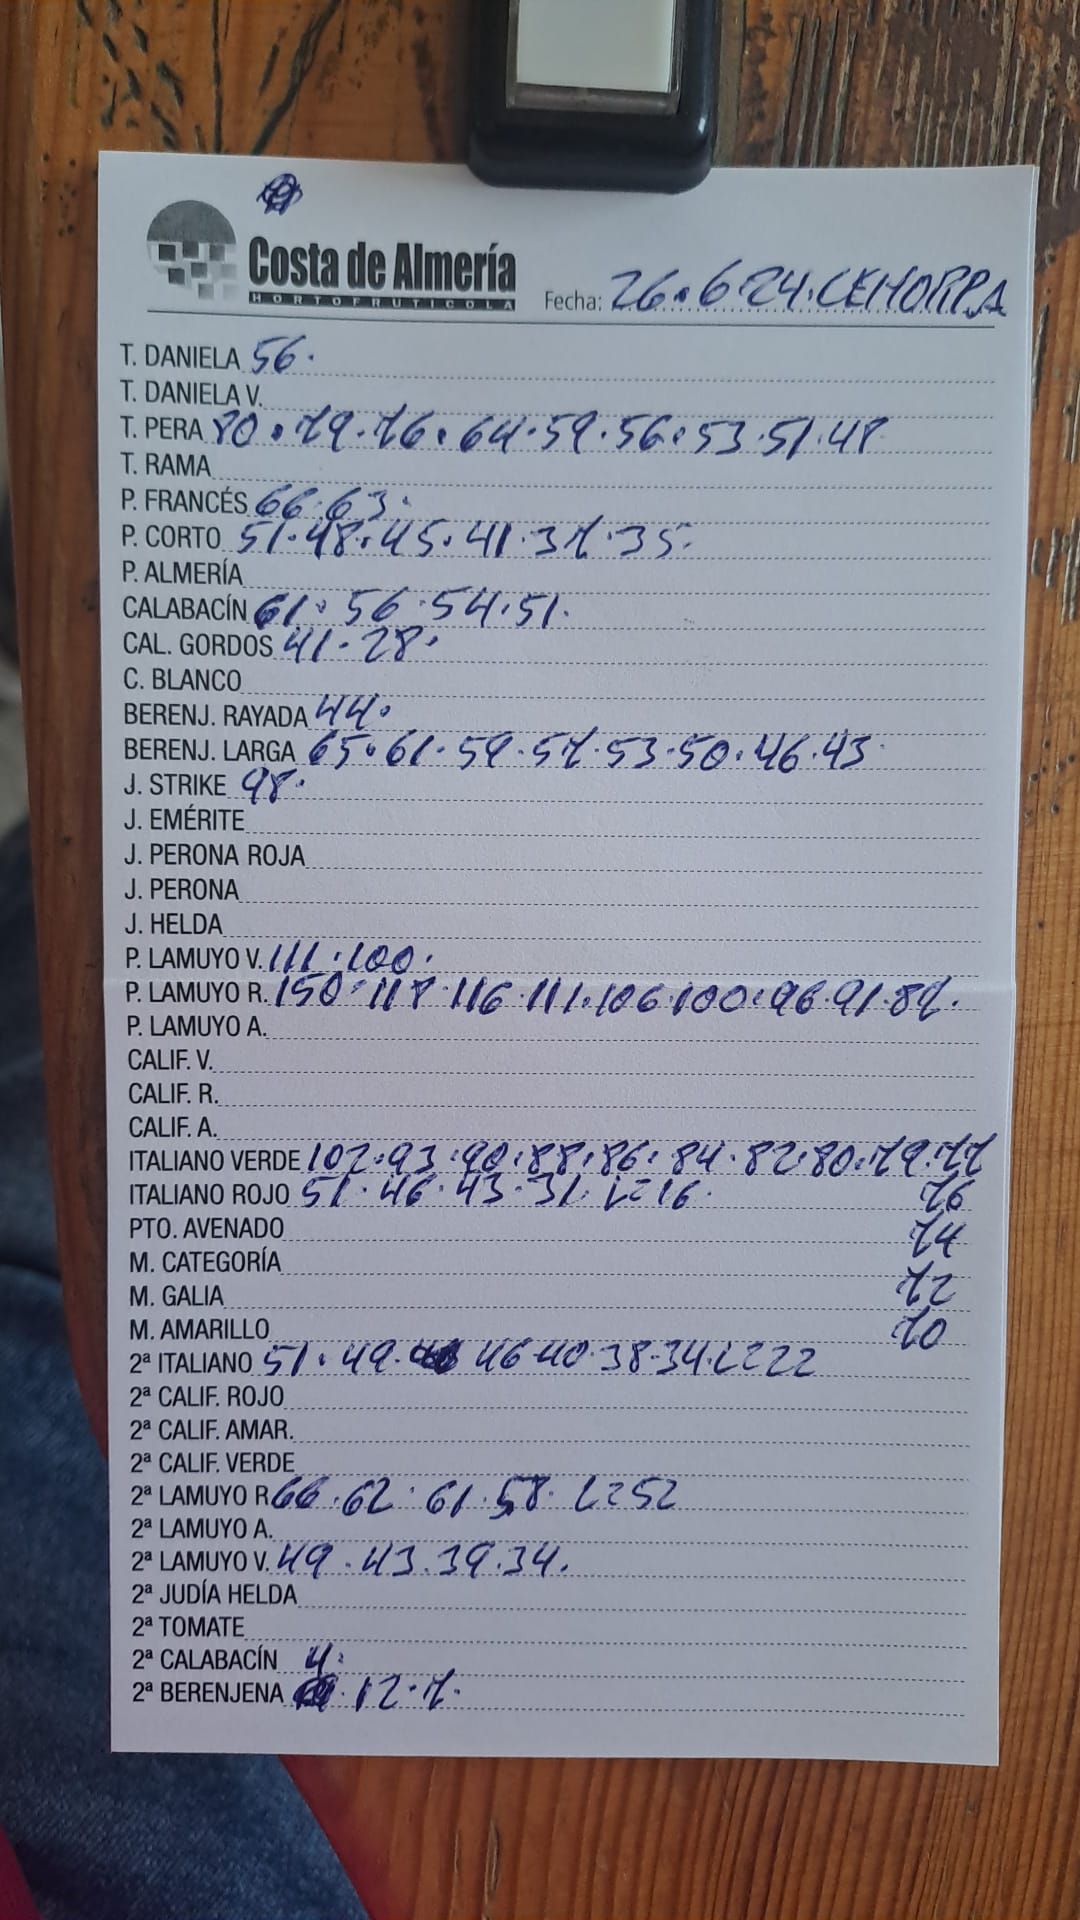 Costa de Almería
HORTOFRUTICOLA
Fecha: 26.6.24.CEHORPA
T. DANIELA 56.
T. DANIELA V.
T. PERA 80.79.76.64.59.56.53.51.48
T. RAMA
P. FRANCÉS 66.63.
P. CORTO 51.48.45.41.37.35.
P. ALMERÍA
CALABACÍN 61.56.54.51.
CAL. GORDOS 41.28.
C. BLANCO
BERENJ. RAYADA 44.
BERENJ. LARGA 65.61.59.57.53.50.46.43.
J. STRIKE 98.
J. EMÉRITE
J. PERONA ROJA
J. PERONA
J. HELDA
P. LAMUYO V. 111.100.
P. LAMUYO R. 150.118.116.111.106.100.96.91.87.
P. LAMUYO A.
CALIF. V.
CALIF. R.
CALIF. A.
ITALIANO VERDE 102.93.90.88.86.84.82.80.79.77
ITALIANO ROJO 51.46.43.31.L=16. 76
PTO. AVENADO 74
M. CATEGORÍA
M. GALIA 72
M. AMARILLO 70
2ª ITALIANO 51.49. 46.40.38.34.L=22
2ª CALIF. ROJO
2ª CALIF. AMAR.
2ª CALIF. VERDE
2ª LAMUYO R 66.62.61.58. L=52
2ª LAMUYO A.
2ª LAMUYO V. 49.43.39.34.
2ª JUDÍA HELDA
2ª TOMATE
2ª CALABACÍN 4.
2ª BERENJENA 12.7.